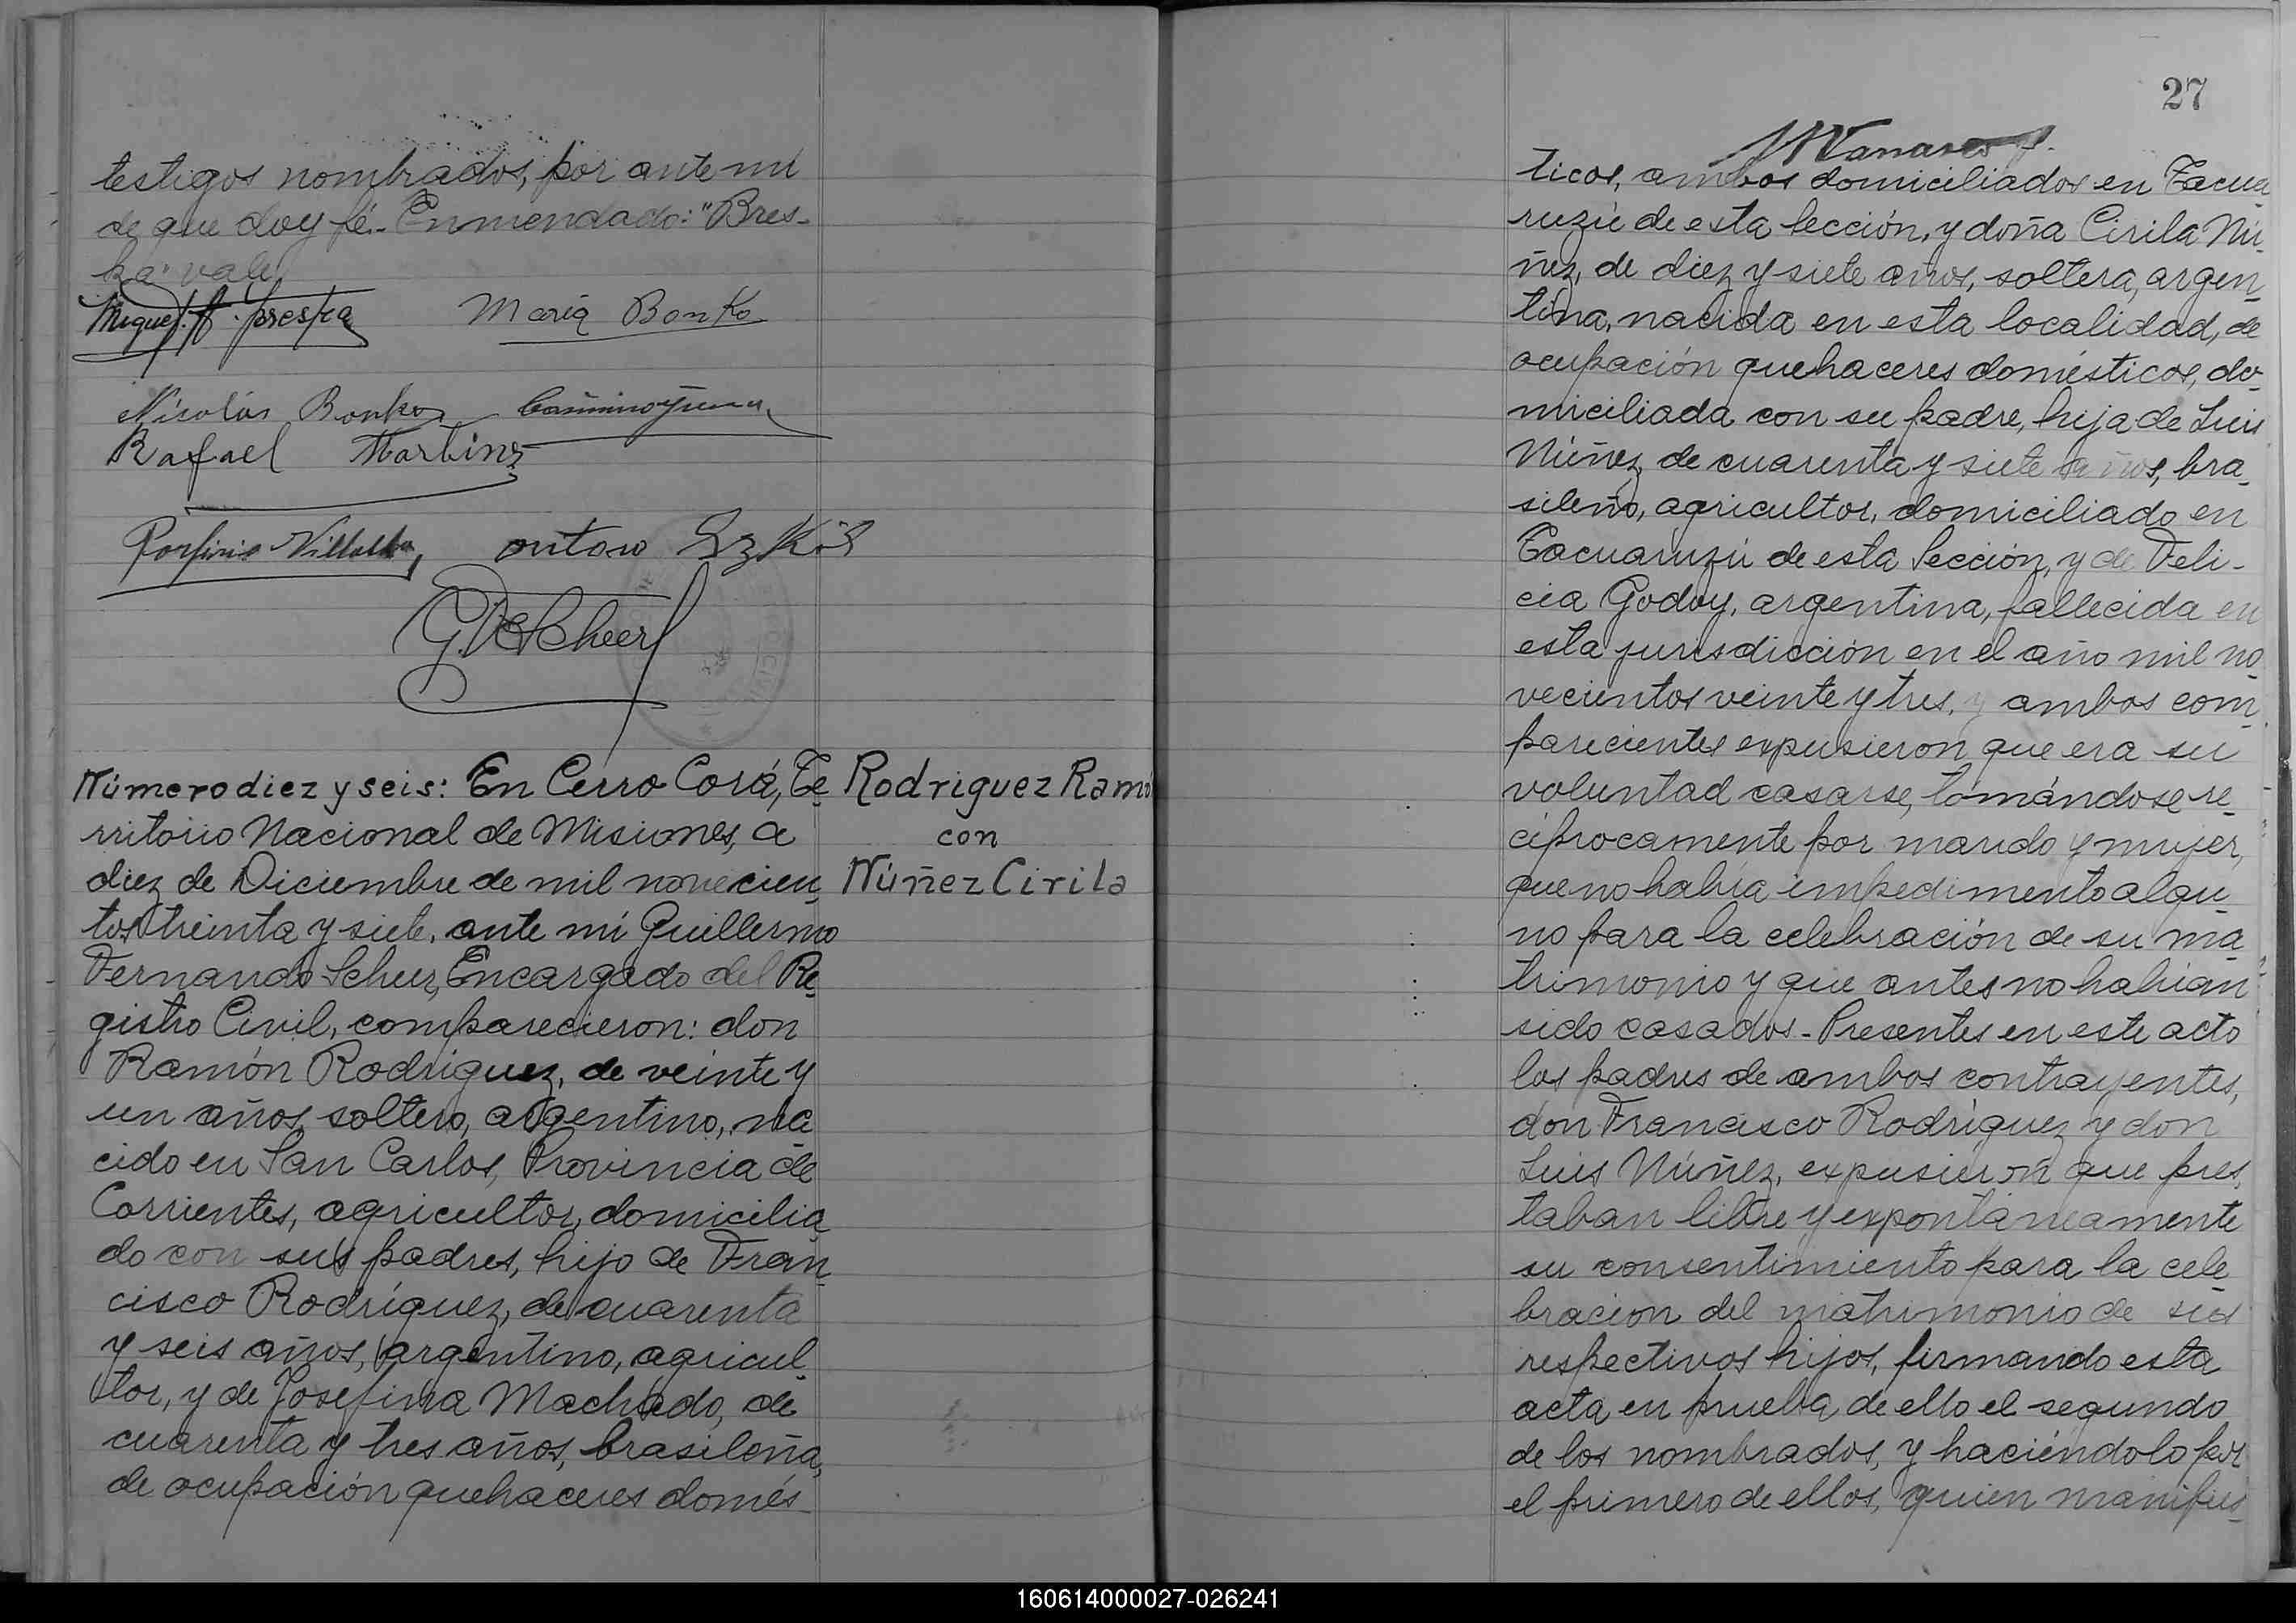 testigos nombrados, por ante mi
de que doy fé.- Enmendado: "Bres-
ka" vale
Miguel A. Breska María Bonko
Nicolás Bonko
Rafael Martinz
Porfirio Villalba,
G. F. Scheer
Número diez y seis: En Cerro Corá, Te
rritorio Nacional de Misiones, a
diez de Diciembre de mil novecien
tos treinta y siete, ante mí Guillermo
Fernando Scheer, Encargado del Re
gistro Civil, comparecieron: don
Ramón Rodríguez, de veinte y
un años, soltero, argentino, na
cido en San Carlos, Provincia de
Corrientes, agricultor, domicilia
do con sus padres, hijo de Fran
cisco Rodríguez, de cuarenta
y seis años, argentino, agricul
tor, y de Josefina Machado, de
cuarenta y tres años, brasileña,
de ocupación quehaceres domés
Rodriguez Ramó
con
Núñez Cirila
27
ticos, ambos domiciliados en Tacua
ruzú de esta Sección, y doña Cirila Nú
ñez, de diez y siete años, soltera, argen
tina, nacida en esta localidad, de
ocupación quehaceres domésticos, do
miciliada con su padre, hija de Luis
Núñez, de cuarenta y siete años, bra
sileño, agricultor, domiciliado en
Tacuaruzú de esta Sección, y de Feli-
cia Godoy, argentina, fallecida en
esta jurisdicción en el año mil no
vecientos veinte y tres, y ambos com
parecientes expusieron que era su
voluntad casarse, tomándose re
ciprocamente por marido y mujer,
que no había impedimento algu
no para la celebración de su ma
trimonio y que antes no habían
sido casados.- Presentes en este acto
los padres de ambos contrayentes,
don Francisco Rodríguez y don
Luis Núñez, expusieron que pres
taban libre y expontáneamente
su consentimiento para la cele
bración del matrimonio de sus
respectivos hijos, firmando esta
acta en prueba de ello el segundo
de los nombrados, y haciéndolo por
el primero de ellos, quien manifies
160614000027-026241